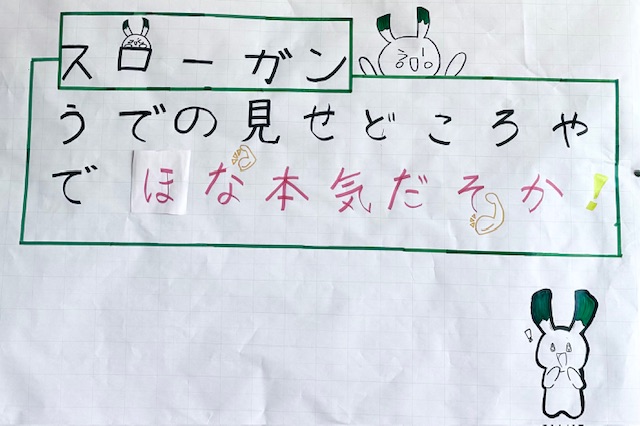 スローガン
うでの見せどころや
で ほな本気だそか!